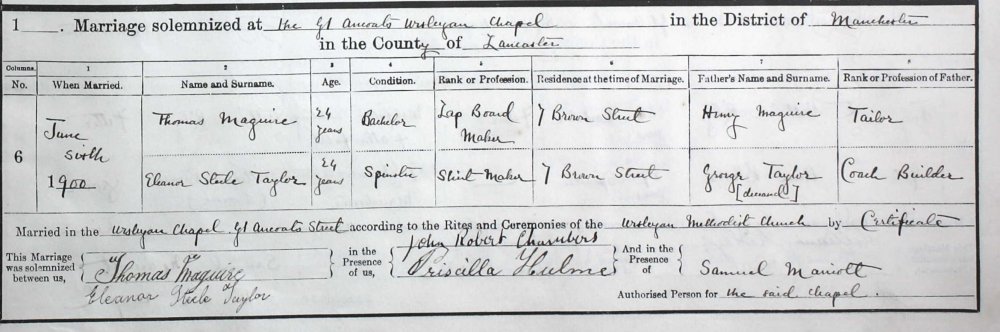 1 . Marriage solemnized at the Gt Ancoats Wesleyan Chapel in the District of Manchester
in the County of Lancaster
Columns. 1 2 3 4 5 6 7 8
No. When Married. Name and Surname. Age. Condition. Rank or Profession. Residence at the time of Marriage. Father's Name and Surname. Rank or Profession of Father.
6 June sixth 1900
Thomas Maguire 24 years Bachelor Lap Board Maker 7 Brown Street Henry Maguire Tailor
Eleanor Steele Taylor 24 years Spinster Shirt Maker 7 Brown Street George Taylor [deceased] Coach Builder
Married in the Wesleyan Chapel Gt Ancoats Street according to the Rites and Ceremonies of the Wesleyan Methodist Church by Certificate
This Marriage was solemnized between us,
Thomas Maguire
Eleanor Steele Taylor
in the Presence of us,
John Robert Chambers
Priscilla Hulme
And in the Presence of
Samuel Marriott
Authorised Person for the said chapel.